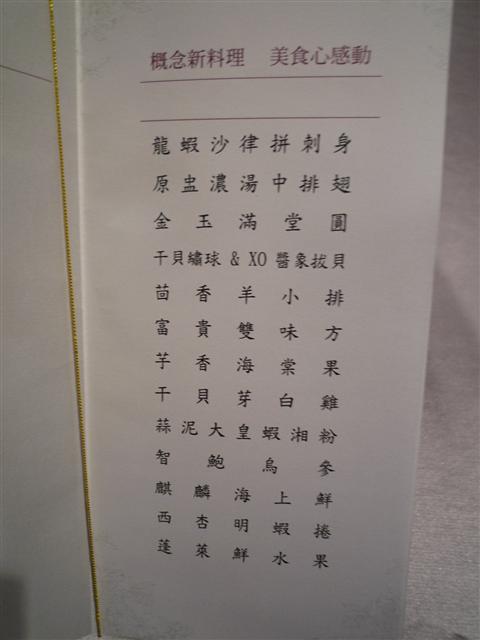 概念新料理 美食心感動
龍蝦沙律拼刺身
原盅濃湯中排翅
金玉滿堂圓
干貝繡球 & XO 醬象拔貝
茴香羊小排
富貴雙味方
芋香海棠果
干貝芽白雞
蒜泥大皇蝦湘粉
智鮑烏參
麒麟海上鮮
西杏明蝦捲
蓬萊鮮水果